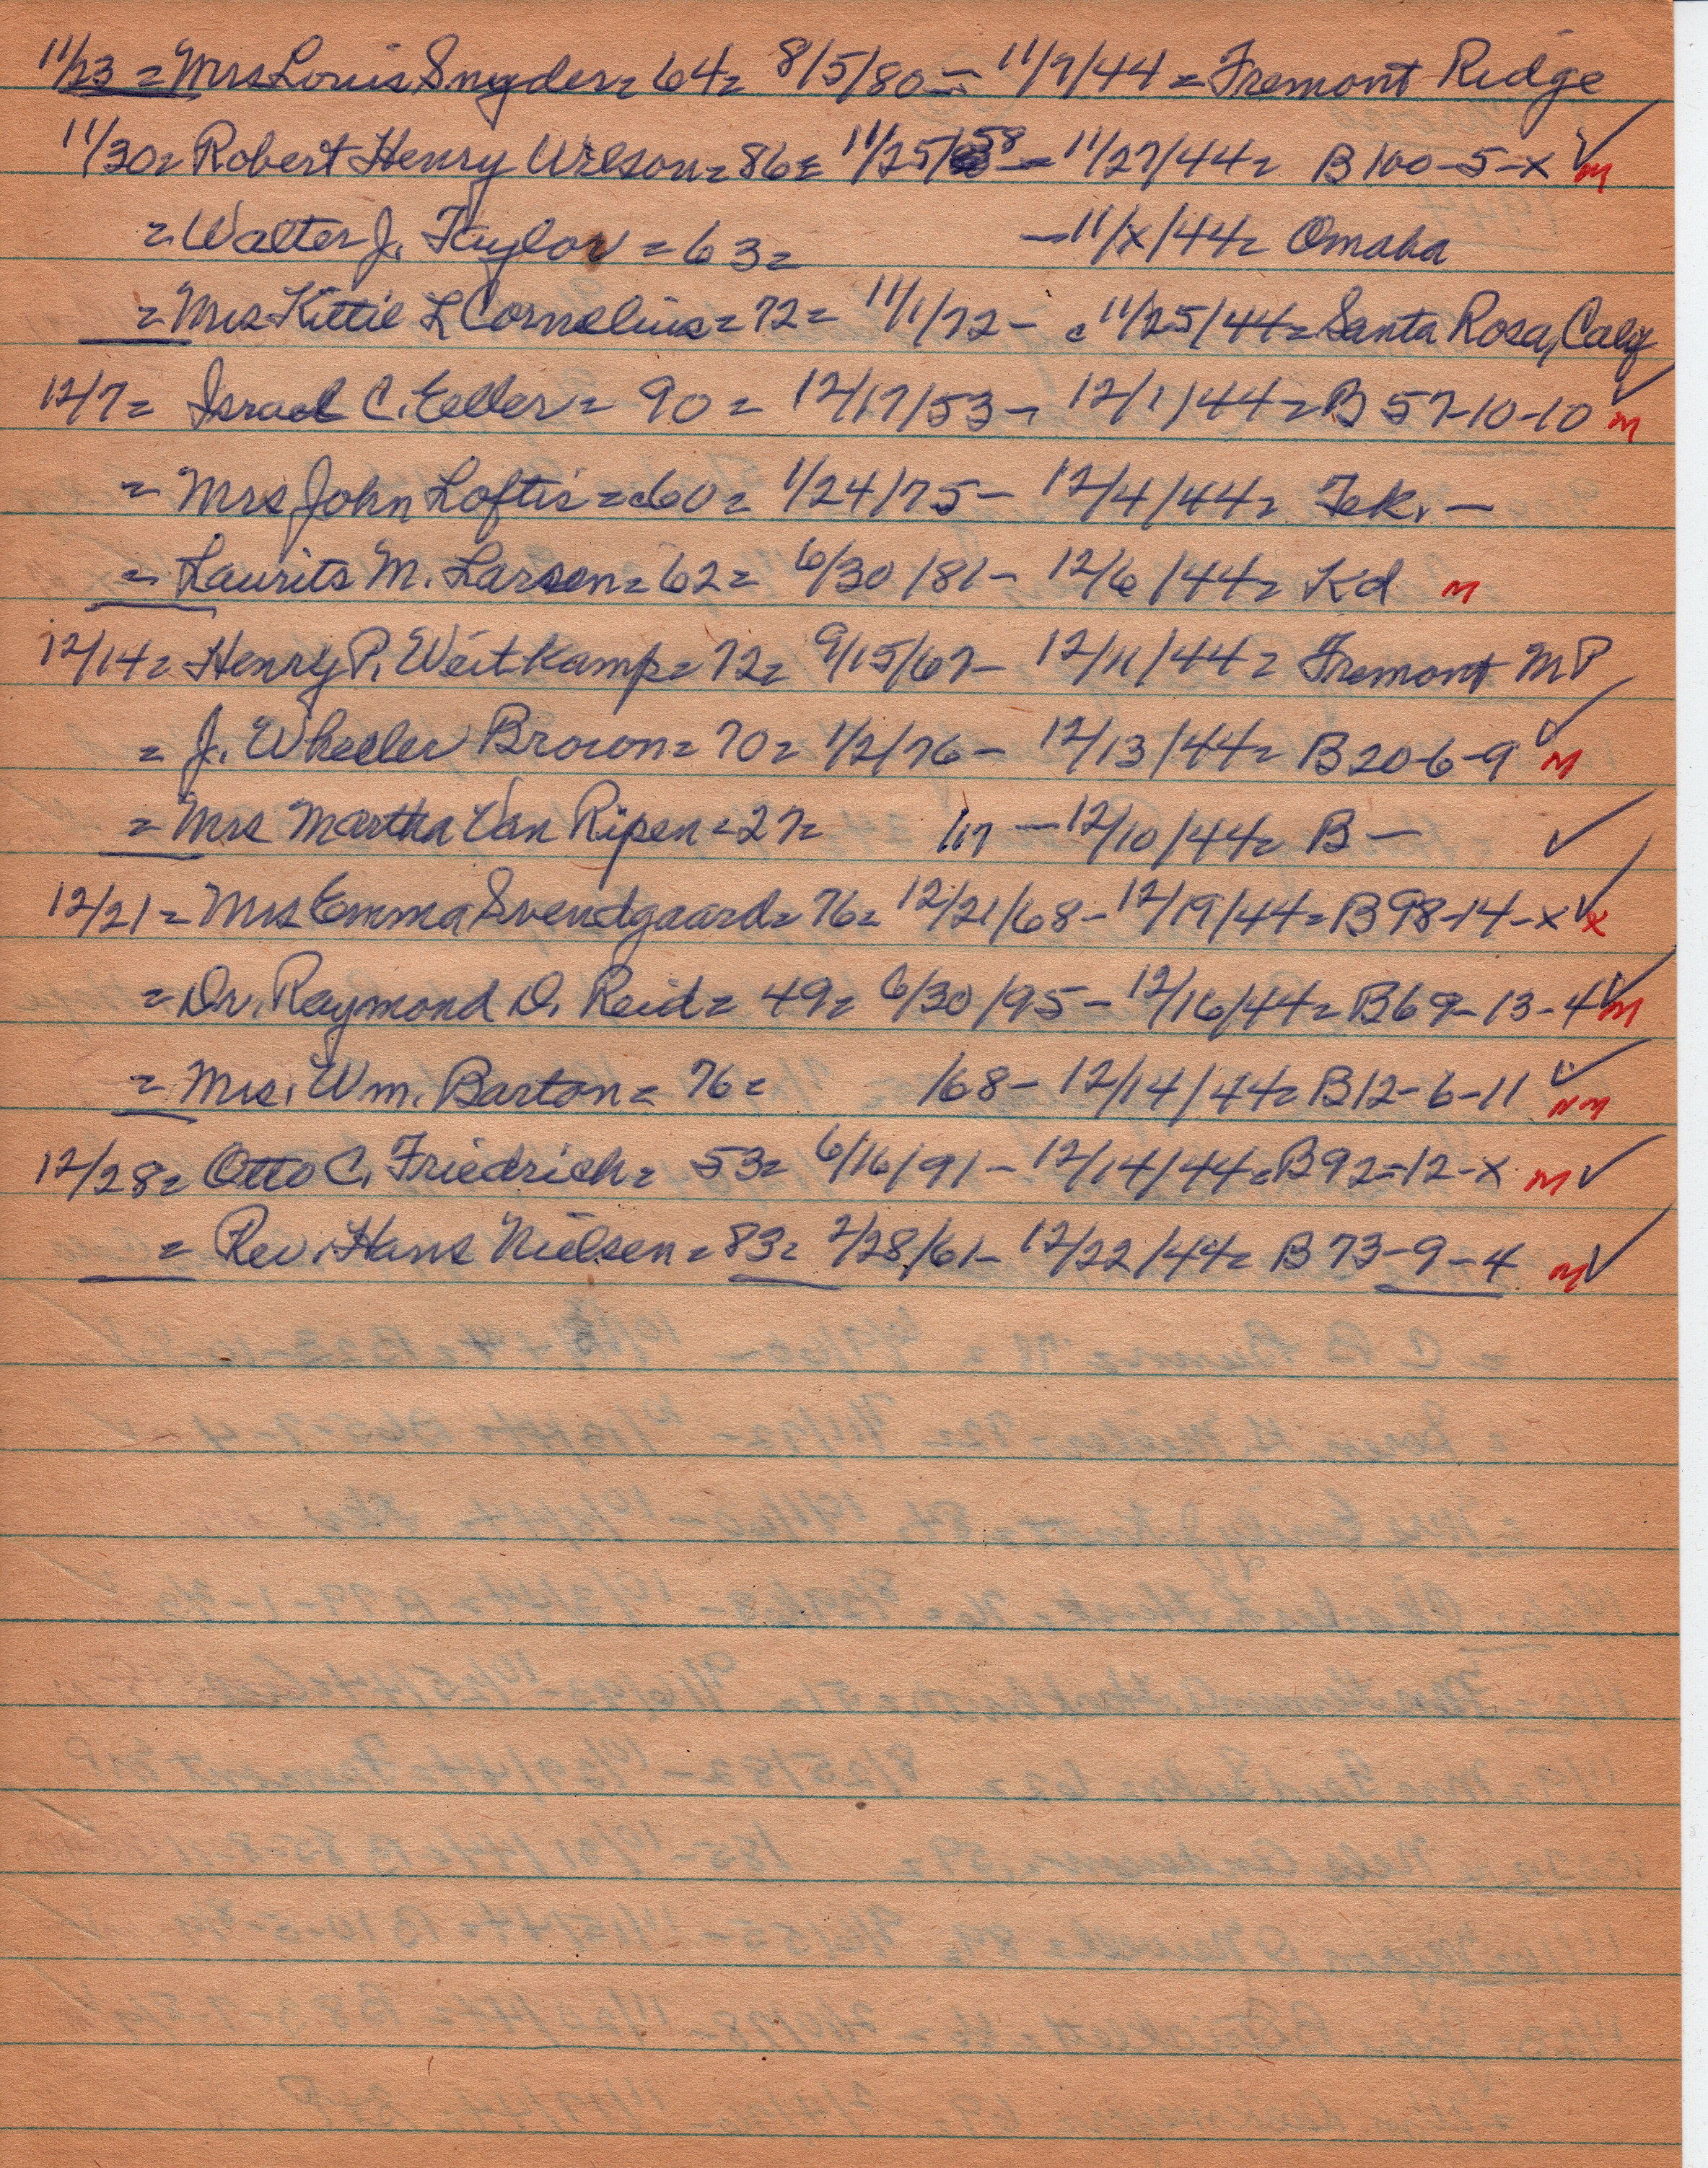 11/23 = Mrs Louis Snyder = 64 = 8/5/80 - 11/9/44 = Fremont Ridge
11/30 = Robert Henry Wilson = 86 = 11/25/58 - 11/27/44 = B 100-5-x ✓ M
= Walter J. Taylor = 63 = - 11/x/44 = Omaha
= Mrs Kittie L Cornelius = 72 = 11/1/72 - c 11/25/44 = Santa Rosa, Calif
12/7 = Israel C. Eller = 90 = 12/17/53 - 12/1/44 = B 57-10-10 ✓ M
= Mrs John Loftis = c60 = 1/24/75 - 12/4/44 = Tek. -
= Laurits M. Larsen = 62 = 6/30/81 - 12/6/44 = Kd M
12/14 = Henry P. Weitkamp = 72 = 9/15/67 - 12/11/44 = Fremont MP
= J. Wheeler Brown = 70 = 1/2/76 - 12/13/44 = B 20-6-9 ✓ M
= Mrs Martha Van Ripen = 27 = /17 - 12/10/44 = B - ✓
12/21 = Mrs Emma Svendgaard = 76 = 12/21/68 - 12/19/44 = B 98-14-x ✓ x
= Dr. Raymond D. Reid = 49 = 6/30/95 - 12/16/44 = B 69-13-4 ✓ M
= Mrs. Wm. Barton = 76 = /68 - 12/14/44 = B 12-6-11 ✓ NM
12/28 = Otto C. Friedrich = 53 = 6/16/91 - 12/14/44 = B 92-12-x M ✓
= Rev. Hans Nielsen = 83 = 2/28/61 - 12/22/44 = B 73-9-4 M ✓